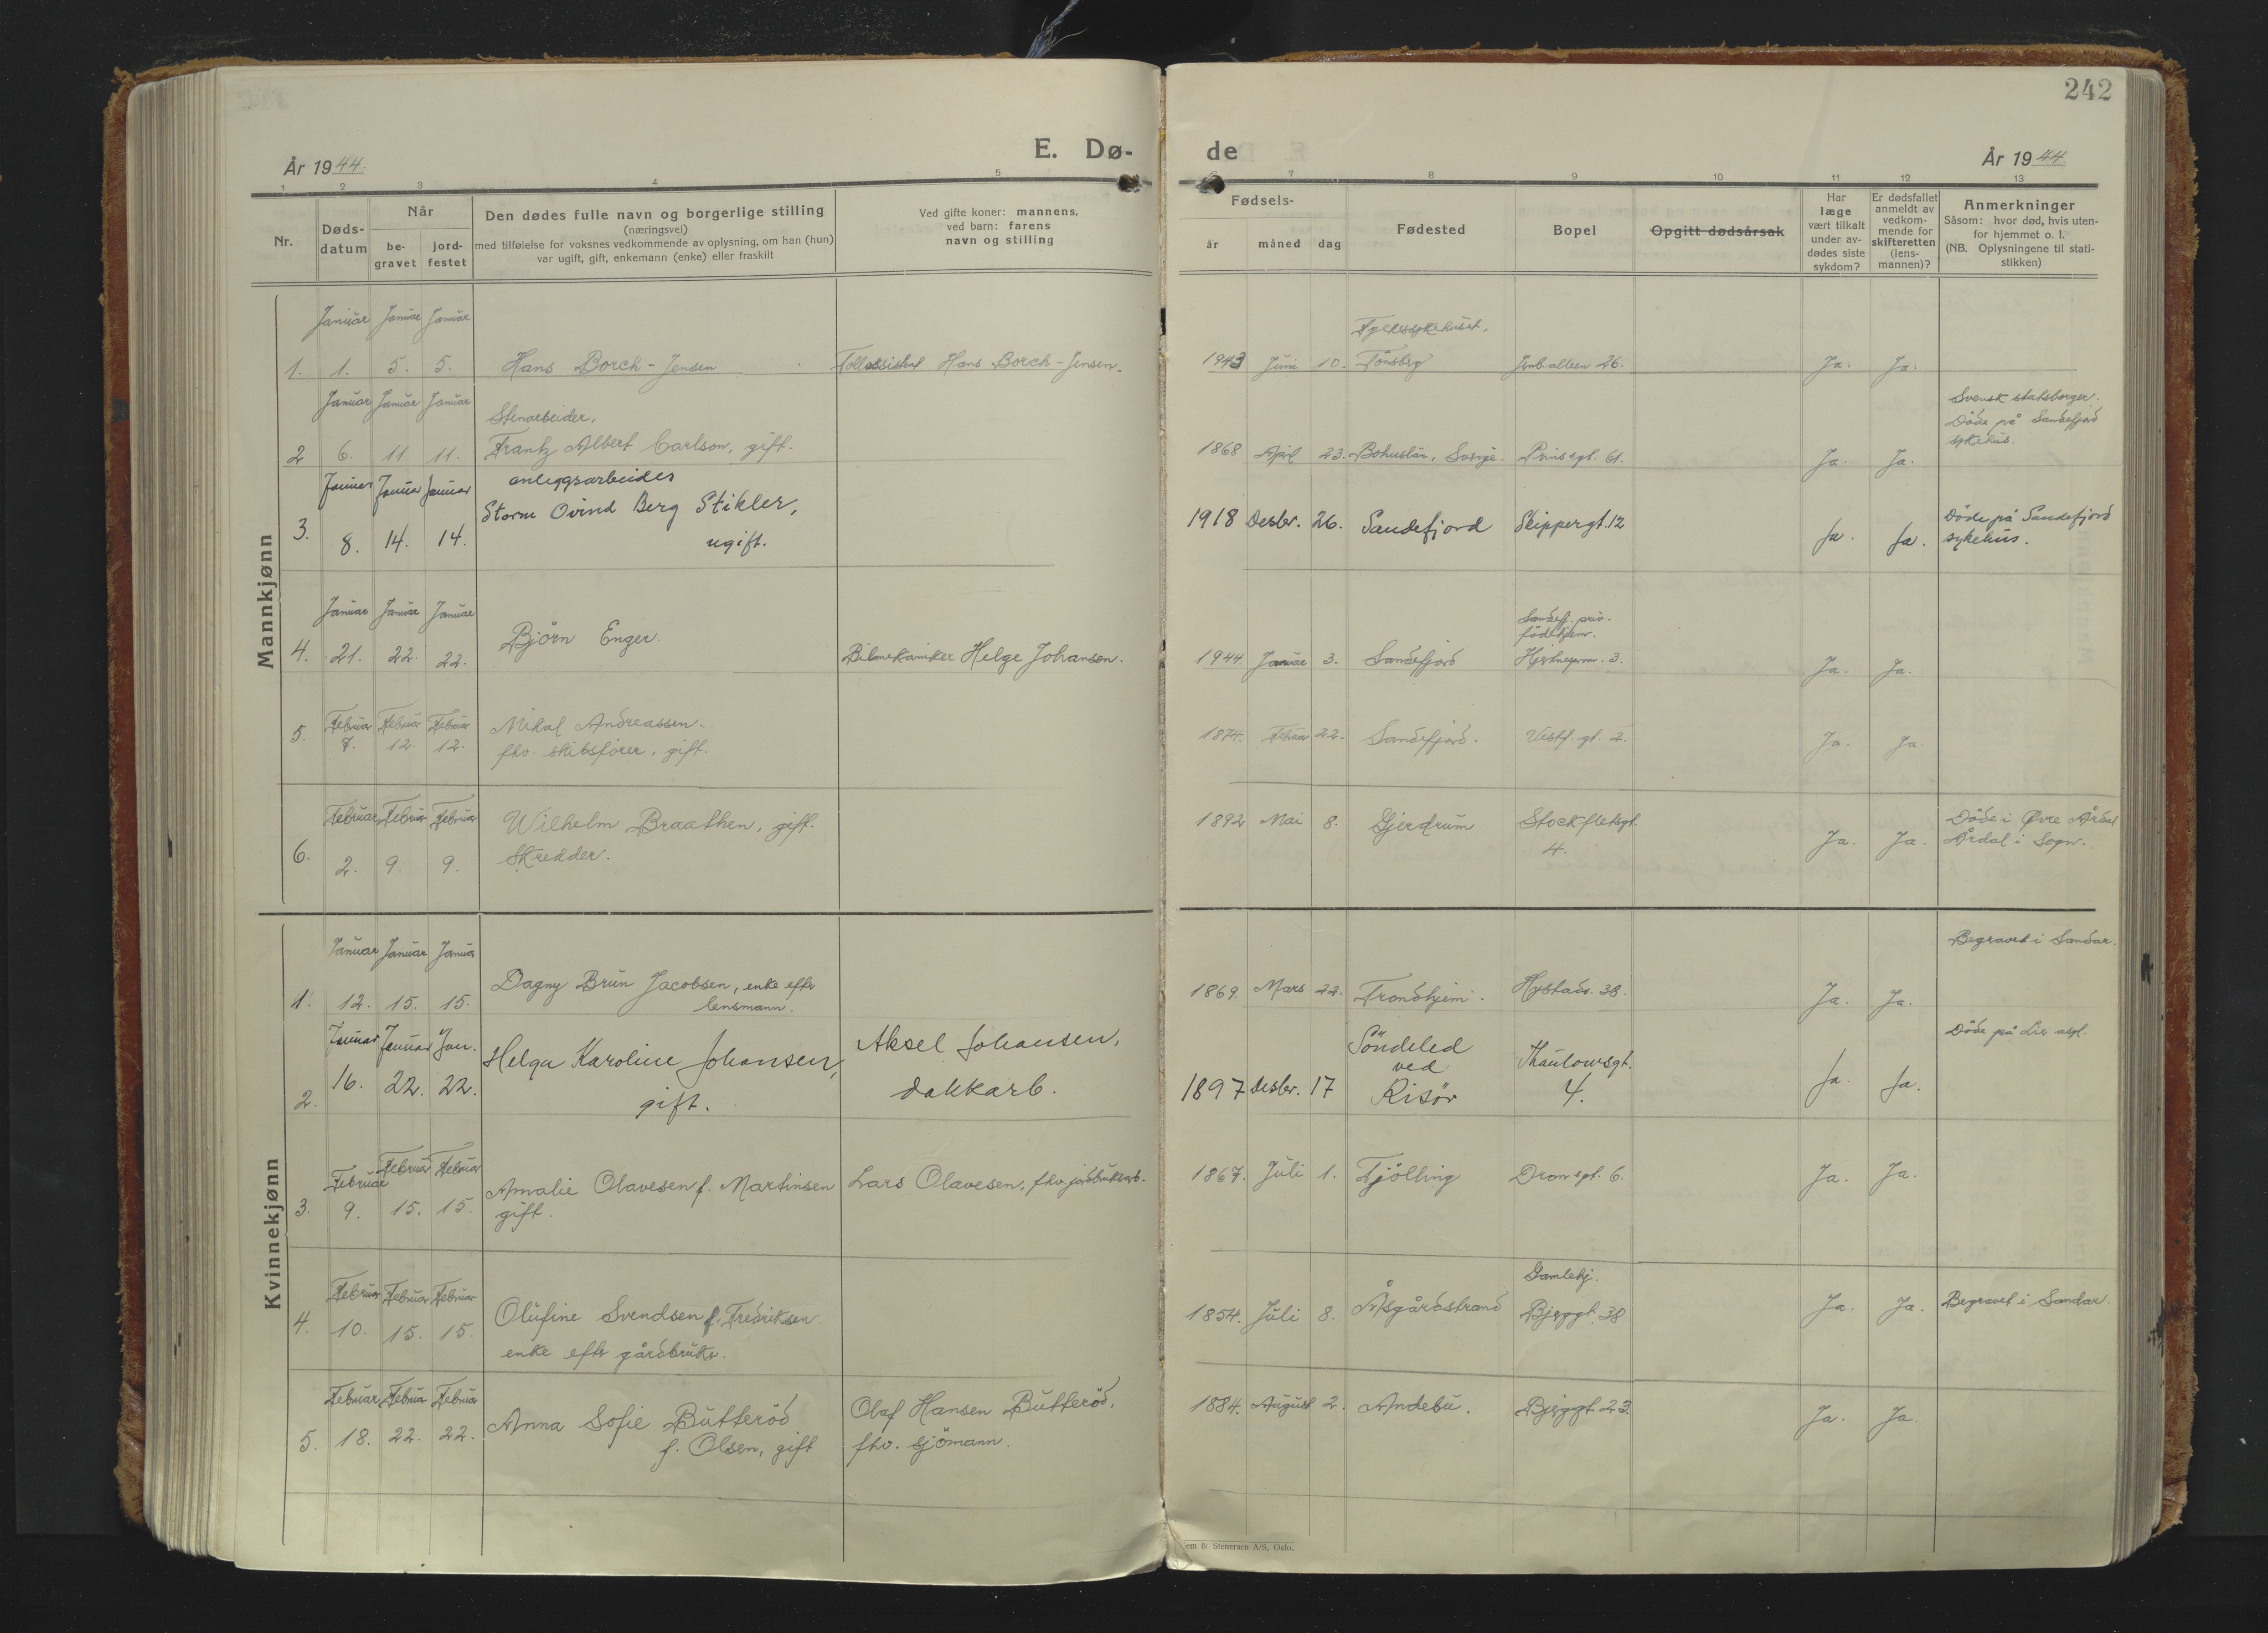 242
År 1944.
E. Dø-
de
År 1944.
1 2 3 4 5
7 8 9 10 11 12 13
Nr.
Døds-
datum
Når
be-
gravet
jord-
festet
Den dødes fulle navn og borgerlige stilling
(næringsvei)
med tilføielse for voksnes vedkommende av oplysning, om han (hun)
var ugift, gift, enkemann (enke) eller fraskilt
Ved gifte koner: mannens,
ved barn: farens
navn og stilling
Fødsels-
år måned dag
Fødested
Bopel
Opgitt dødsårsak
Har
læge
vært tilkalt
under av-
dødes siste
sykdom?
Er dødsfallet
anmeldt av
vedkom-
mende for
skifteretten
(lens-
mannen)?
Anmerkninger
Såsom: hvor død, hvis uten-
for hjemmet o. l.
(NB. Oplysningene til stati-
stikken)
Mannkjønn
Januar Januar Januar
1. 1. 5. 5. Hans Borch-Jensen Tollassistent Hans Borch-Jensen.
Fylkessykehuset,
1943 Juni 10. Tönsberg Jernb.alleen 26. Ja. Ja.
Januar Januar Januar
Stenarbeider,
2 6. 11 11. Frantz Albert Carlson, gift.
1868 April 23. Bohuslän, Sverige. Prinsegt. 61. Ja. Ja.
Svensk statsborger.
Döde på Sandefjord
sykehus.
Januar Januar Januar
anleggsarbeider
3. 8. 14. 14. Storm Ovind Berg Stikler,
ugift.
1918 Desbr. 26. Sandefjord Skippergt. 12 Ja. Ja.
Döde på Sandefjord
sykehus.
Januar Januar Januar
4. 21. 22. 22. Björn Enger. Bilmekaniker Helge Johansen.
Sandefj. priv.
födehjem.
1944. Januar 3. Sandefjord 3. Ja. Ja.
Februar Februar Februar
5. 7. 12. 12. Nikal Andreassen.
fhv. skibsförer, gift.
1874. Februar 22. Sandefjord. Vestf. gt. 2. Ja. Ja.
Februar Februar Februar
6. 2. 9. 9. Wilhelm Braathen, gift.
Skredder.
1892 Mai 8. Gjerdrum Stockfletsgt.
4. Ja. Ja.
Döde i Øvre Årdal
Årdal i Sogn.
Kvinnekjønn
Januar Januar Januar
1. 12. 15. 15. Dagny Brun Jacobsen, enke eftr
lensmann.
1869. Mars 22. Trondhjem. Hystadv. 38. Ja. Ja.
Begravet i Sandar.
Januar Januar Jan.
2. 16. 22. 22. Helga Karoline Johansen,
gift.
Aksel Johansen,
dokkarb.
1897 Desbr. 17 Söndeled
ved
Risör
Thaulowsgt.
4. Ja. Ja.
Döde på Lier asyl.
Februar Februar Februar
3. 9. 15. 15. Amalie Olavesen f. Martinsen
gift.
Lars Olavesen, fhv. jordbruksarb.
1867. Juli 1. Tjölling Dronsgt. 6. Ja. Ja.
Februar Februar Februar
4. 10. 15. 15. Olufine Svendsen f. Fredriksen
enke eftr gårdbruker.
Gamlehj.
1854. Juli 8. Åsgårdstrand Bjerggt. 38 Ja. Ja.
Begravet i Sandar.
Februar Februar Februar
5. 18. 22. 22. Anna Sofie Butteröd
f. Olsen, gift
Olaf Hansen Butteröd,
fhv. sjömann.
1884. August 2. Andebu. Bjerggt 23. Ja. Ja.
em & Stenersen A/S, Oslo.